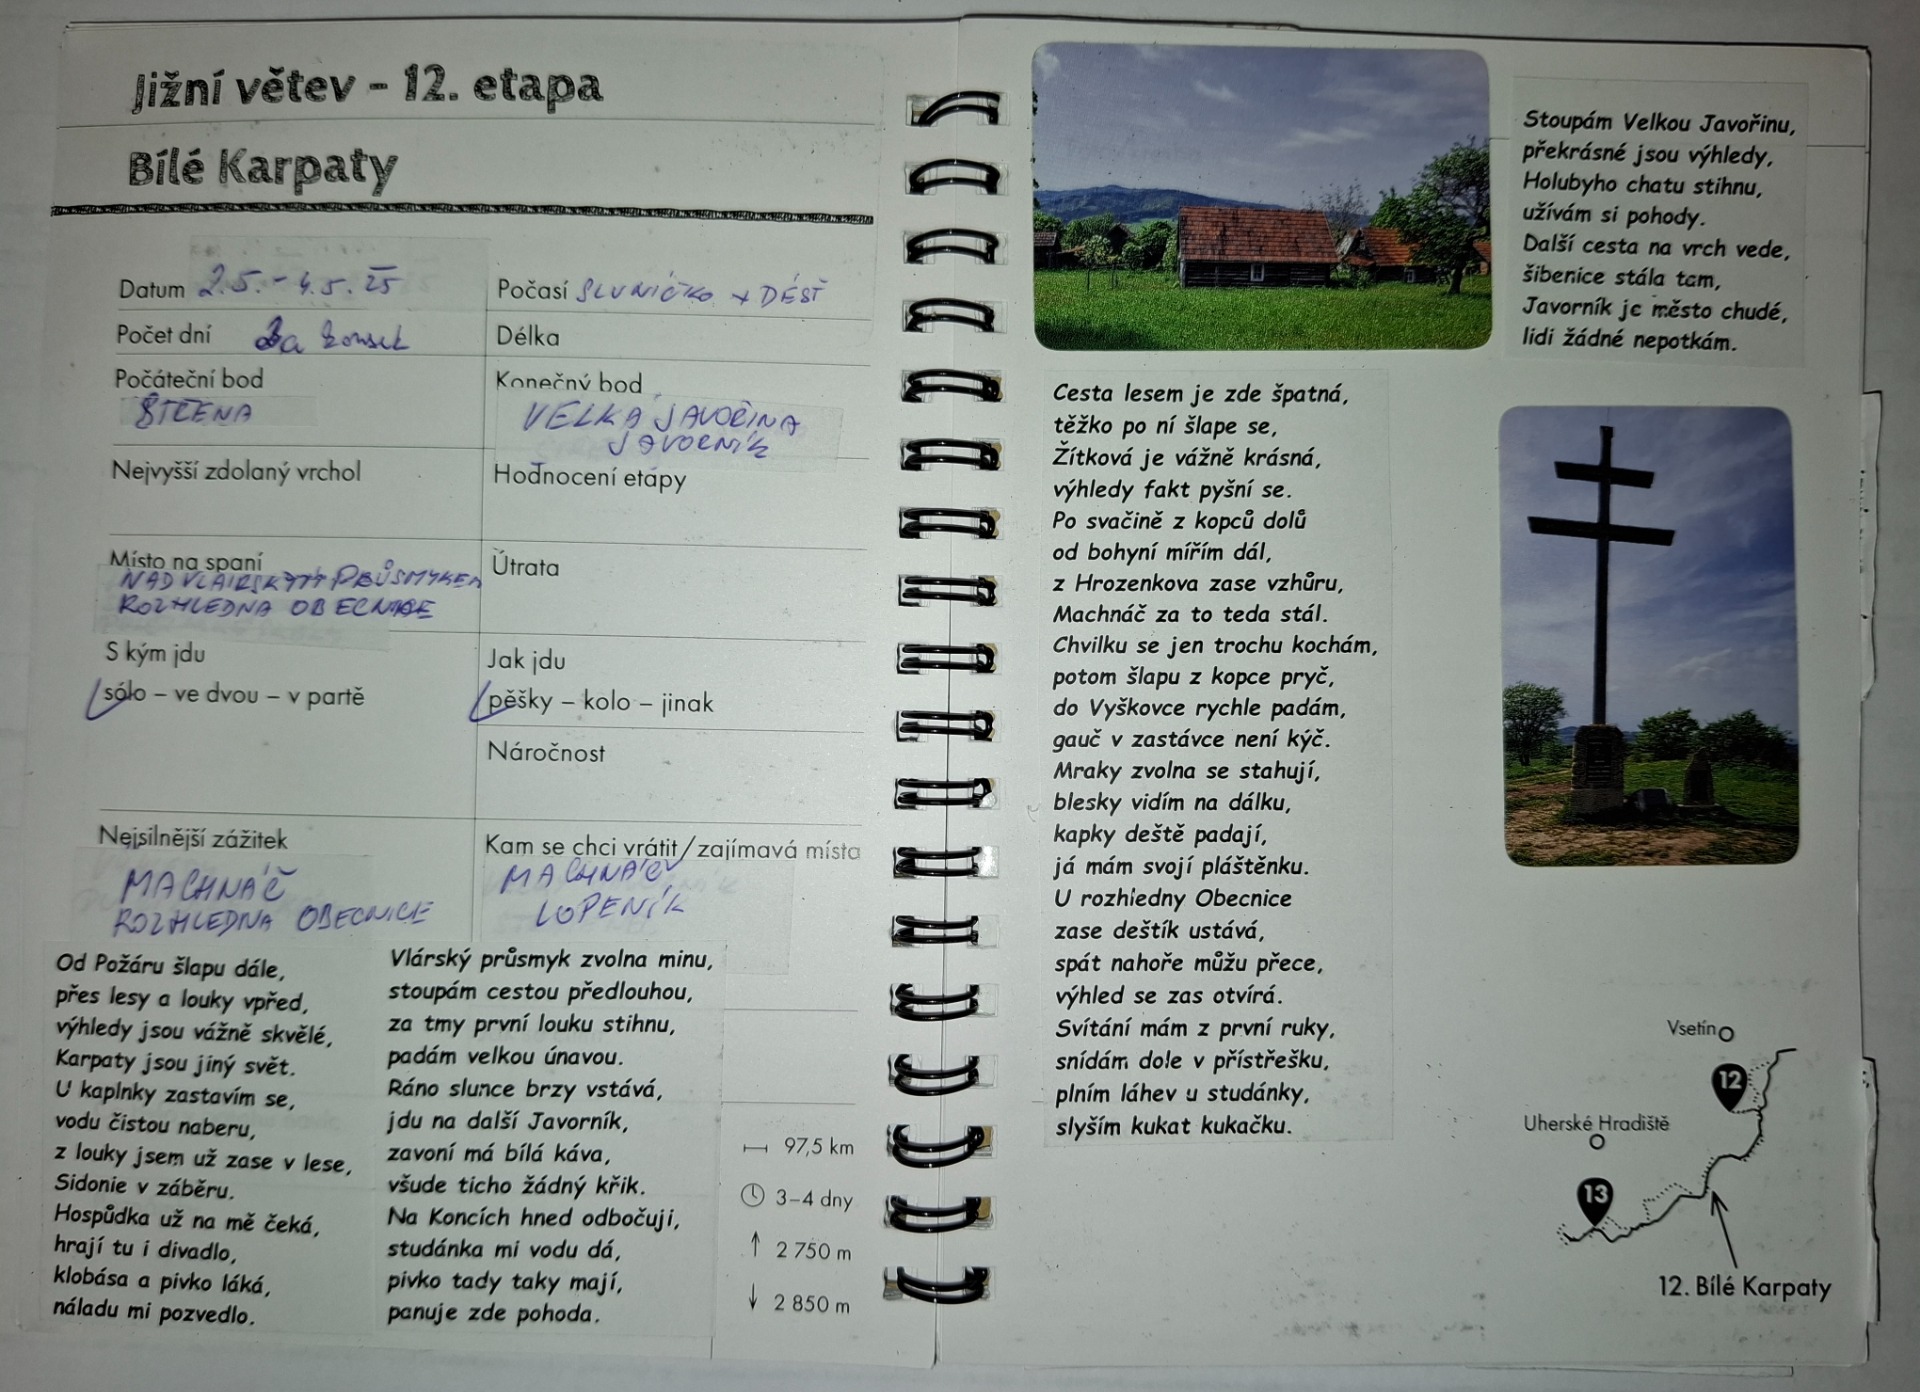 Jižní větev – 12. etapa
Bílé Karpaty
Datum 2.5. - 4.5. 25
Počasí SLUNÍČKO + DÉŠŤ
Počet dní
Délka
Počáteční bod
Konečný bod
VELKÁ JAVOŘINA
JAVORNÍK
Nejvyšší zdolaný vrchol
Hodnocení etapy
Místo na spaní
NAD VLÁRSKÝM PRŮSMYKEM
ROZHLEDNA OBECNICE
Útrata
S kým jdu
sólo – ve dvou – v partě
Jak jdu
pěšky – kolo – jinak
Náročnost
Nejsilnější zážitek
MACHNÁČ
ROZHLEDNA OBECNICE
Kam se chci vrátit/zajímavá místa
MACHNÁČ
LOPENÍK
Od Požáru šlapu dále,
přes lesy a louky vpřed,
výhledy jsou vážně skvělé,
Karpaty jsou jiný svět.
U kaplnky zastavím se,
vodu čistou naberu,
z louky jsem už zase v lese,
Sidonie v záběru.
Hospůdka už na mě čeká,
hrají tu i divadlo,
klobása a pivko láká,
náladu mi pozvedlo.
Vlárský průsmyk zvolna minu,
stoupám cestou předlouhou,
za tmy první louku stihnu,
padám velkou únavou.
Ráno slunce brzy vstává,
jdu na další Javorník,
zavoní má bílá káva,
všude ticho žádný křik.
Na Koncích hned odbočuji,
studánka mi vodu dá,
pivko tady taky mají,
panuje zde pohoda.
97,5 km
3–4 dny
2 750 m
2 850 m
Cesta lesem je zde špatná,
těžko po ní šlape se,
Žítková je vážně krásná,
výhledy fakt pyšní se.
Po svačině z kopců dolů
od bohyní mířím dál,
z Hrozenkova zase vzhůru,
Machnáč za to teda stál.
Chvilku se jen trochu kochám,
potom šlapu z kopce pryč,
do Vyškovce rychle padám,
gauč v zastávce není kýč.
Mraky zvolna se stahují,
blesky vidím na dálku,
kapky deště padají,
já mám svojí pláštěnku.
U rozhledny Obecnice
zase deštík ustává,
spát nahoře můžu přece,
výhled se zas otvírá.
Svítání mám z první ruky,
snídám dole v přístřešku,
plním láhev u studánky,
slyším kukat kukačku.
Stoupám Velkou Javořinu,
překrásné jsou výhledy,
Holubyho chatu stihnu,
užívám si pohody.
Další cesta na vrch vede,
šibenice stála tam,
Javorník je město chudé,
lidi žádné nepotkám.
Vsetín
12
Uherské Hradiště
13
12. Bílé Karpaty